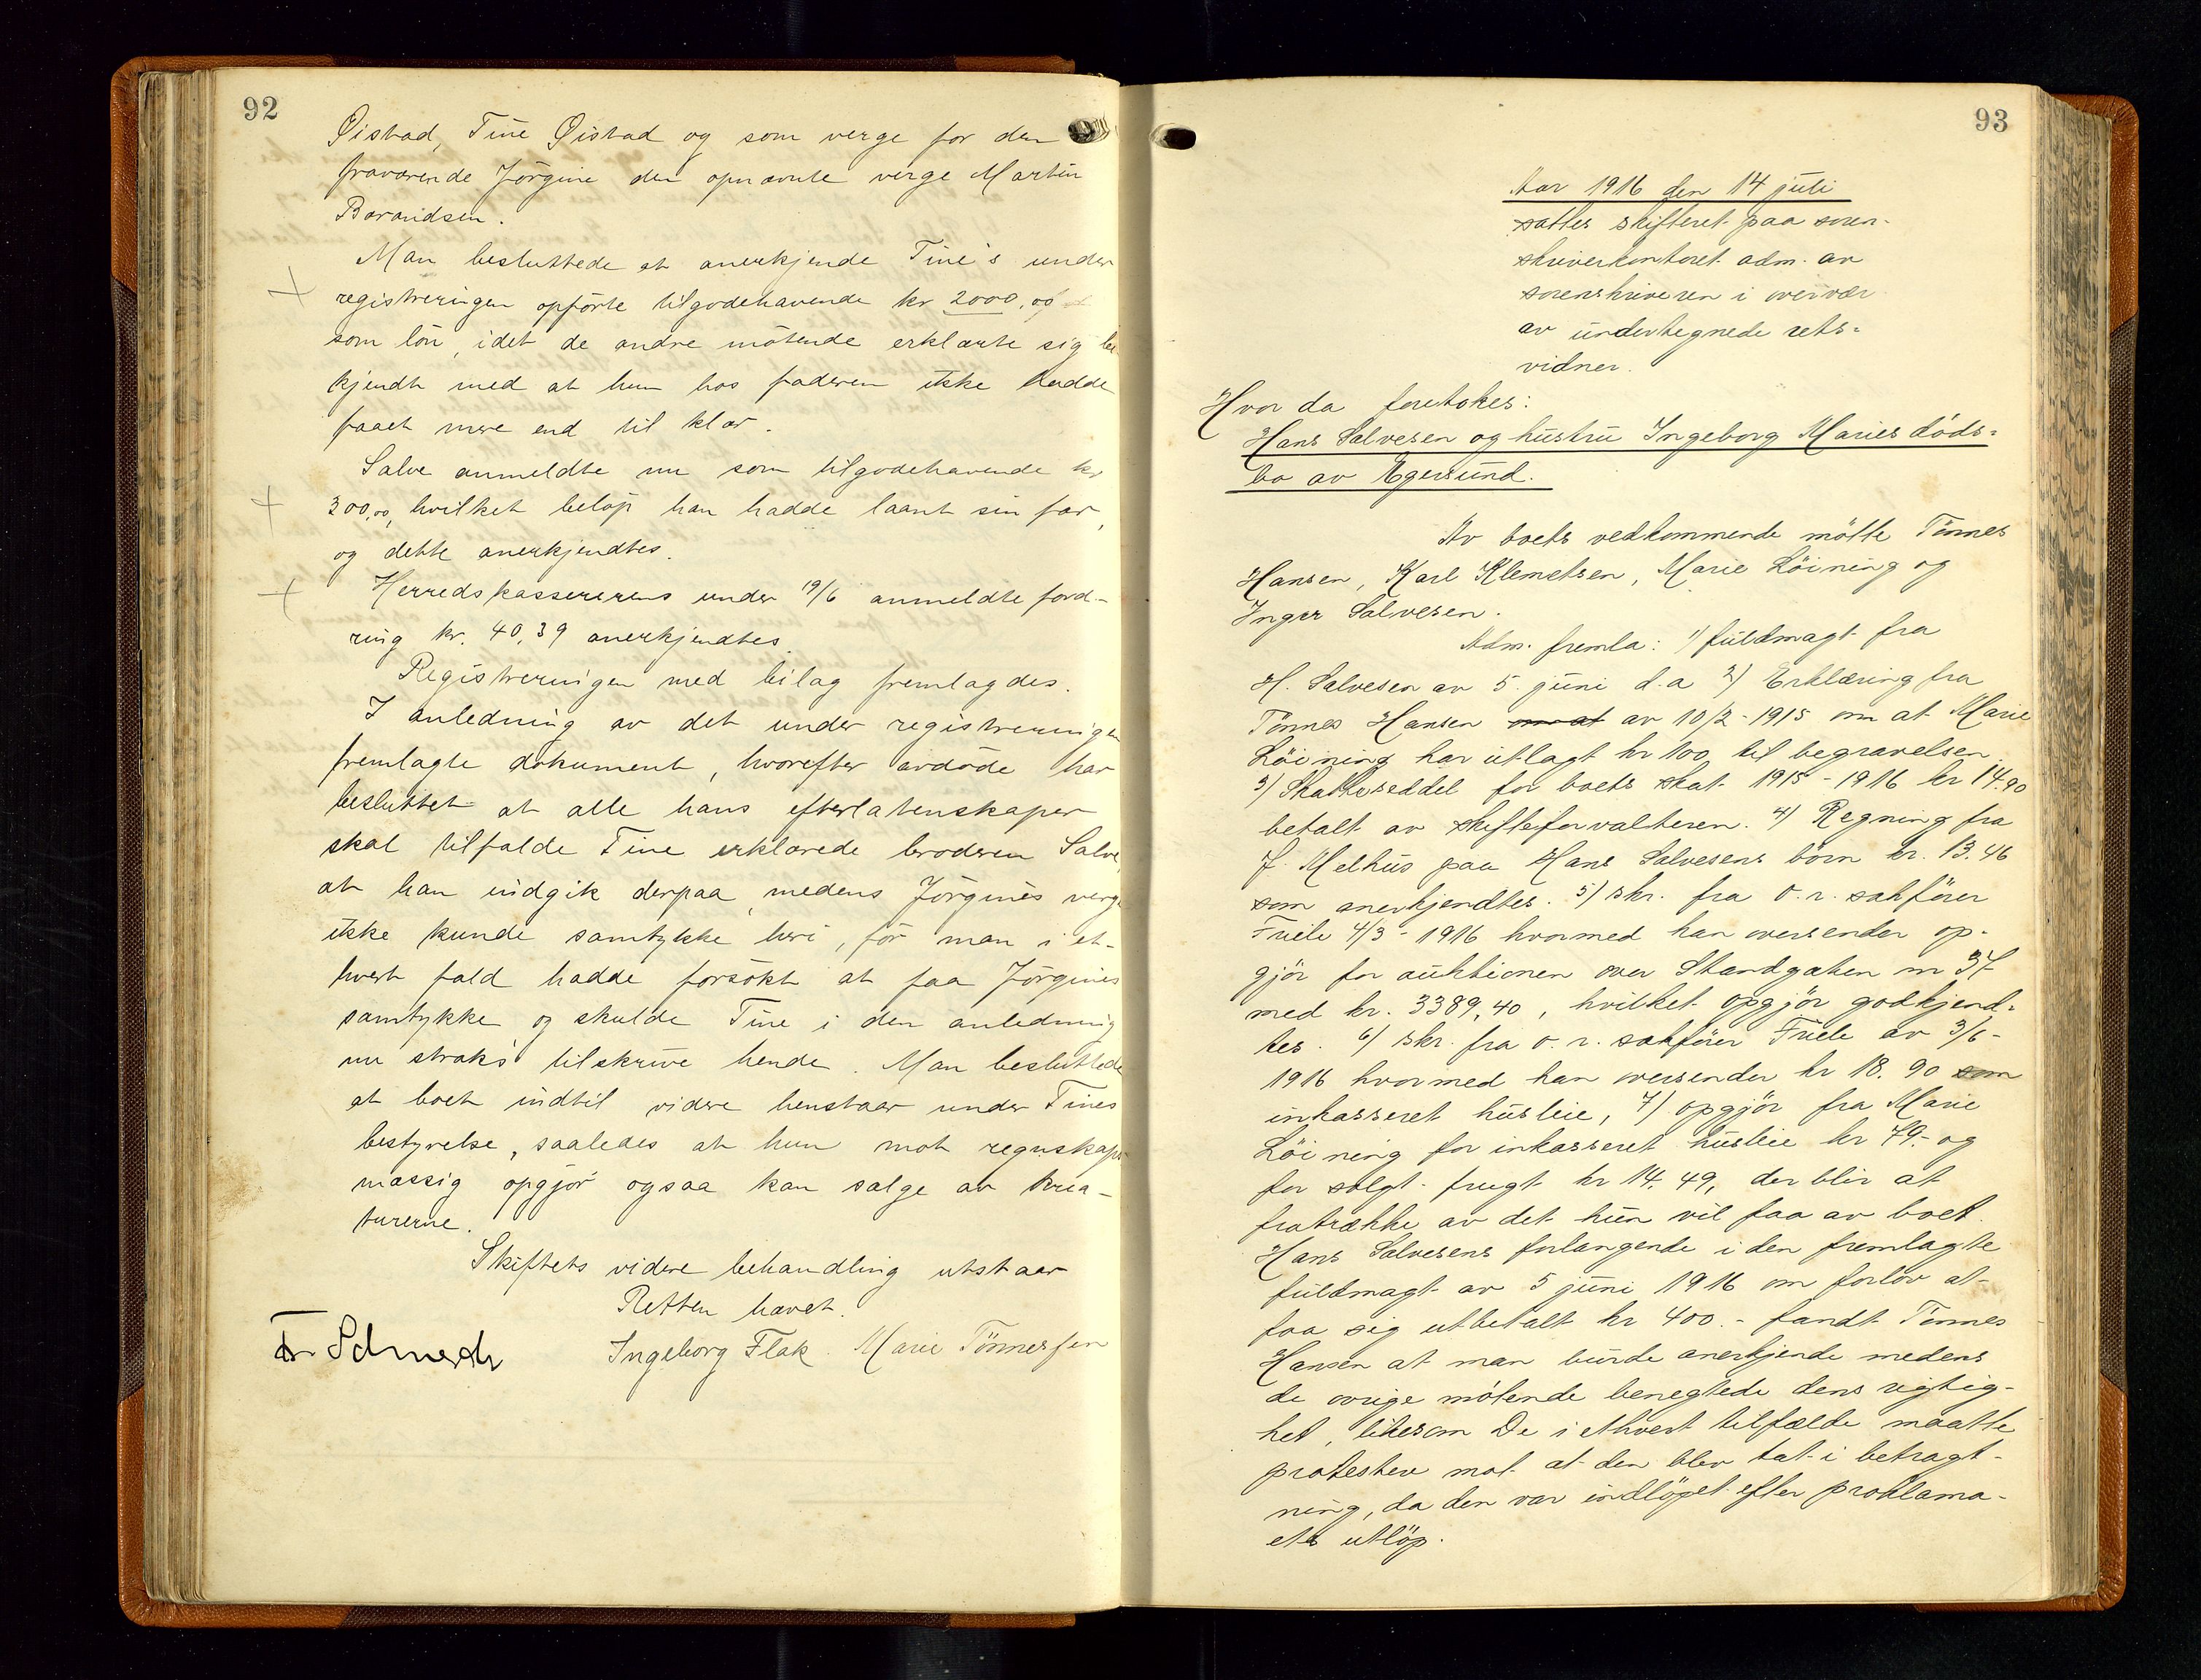 92
Øistad, Tine Øistad og som verge for den
fraværende Jörgine den opnævnte verge Martin
Barandsen.
Man besluttede at anerkjende Tine's under
registreringen opförte tilgodehavende kr 2000,00
som lön, idet de andre mötende erklærte sig be
kjendt med at hun hos faderen ikke hadde
faaet mere end til klær.
Salve anmeldte nu som tilgodehavende kr
300,00, hvilket belöp han hadde laant sin far,
og dette anerkjendtes.
Herredskassererens under 19/6 anmeldte ford-
ring kr. 40,39 anerkjendtes.
Registreringen med bilag fremlagdes.
I anledning av det under registreringen
fremlagte dokument, hvorefter avdöde har
besluttet at alle hans efterlatenskaper
skal tilfalde Tine erklærede broderen Salve,
at han indgik derpaa, medens Jörgines verge
ikke kunde samtykke heri, för man i et-
hvert fald hadde forsökt at faa Jörgines
samtykke og skulde Tine i den anledning
nu straks tilskrive hende. Man besluttede
at boet indtil videre henstaar under Tines
bestyrelse, saaledes at hun mot regnskaps
mæssig opgjör ogsaa kan sælge av krea-
turerne.
Skiftets videre behandling utstaar
Retten hævet.
Ingeborg Flak. Marie Tönnessen
93
Aar 1916 den 14 juli
sattes skifteret paa soren-
skriverkontoret adm. av
sorenskriveren i overvær
av undertegnede rets-
vidner.
Hvor da foretokes:
Hans Salvesen og hustru Ingeborg Maries döds-
bo av Egersund.
Av boets vedkommende mötte Tönnes
Hansen, Karl Klemetsen, Marie Löining og
Inger Salvesen.
Adm. fremla: 1) fuldmagt fra
H. Salvesen av 5. juni d.a 2) Erklæring fra
Tönnes Hansen om at av 10/2-1915 om at Marie
Löining har utlagt kr 100 til begravelsen
3) Skatteseddel for boets skat 1915-1916 kr 14.90
betalt av skifteforvalteren. 4) Regning fra
J. Melhus paa Hans Salvesens börn kr. 13.46
som anerkjendtes. 5) skr. fra o. r. sakförer
Friele 4/3-1916 hvormed han oversender op-
gjör for auktionen over Standgaten nr 37
med kr. 3389,40, hvilket opgjör godkjend-
tes. 6) skr. fra o. r. sakförer Friele av 3/6-
1916 hvormed han oversender kr 18.90 som
inkasseret husleie, 7) opgjör fra Marie
Löining for inkasseret husleie kr 79.- og
for solgt frugt kr 14.49, der blir at
fratrække av det hun vil faa av boet.
Hans Salvesens forlangende i den fremlagte
fuldmagt av 5 juni 1916 om forlov at
faa sig utbetalt kr 400.- fandt Tönnes
Hansen at man burde anerkjende medens
de övrige mötende benegtede dens rigtig-
het, likesom De i ethvert tilfælde maatte
protestere mot at den blev tat i betragt-
ning, da den var indlöpet efter proklama-
ets utlöp.